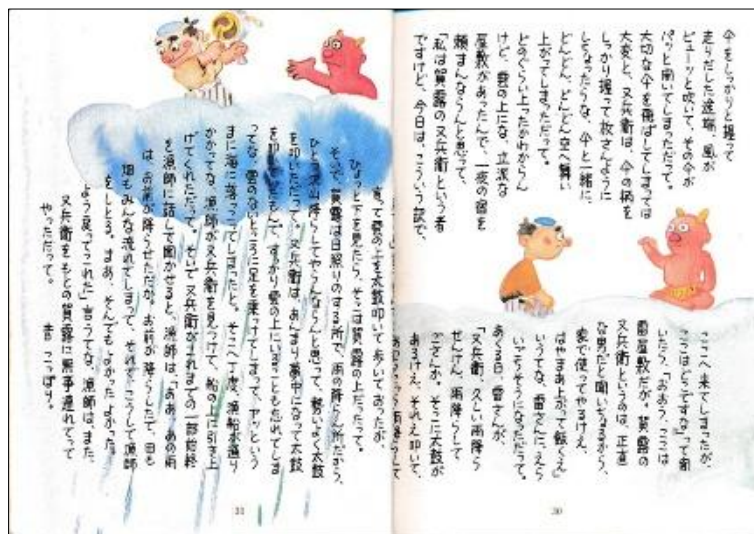 傘をしっかりと握って
走りだした途端、風が
ビューッと吹いて、その傘が
パッと開いてしまっただって。
大切な傘を飛ばしてしまっては
大変と、又兵衛は、傘の柄を
しっかり握って放さんように
しちょったらな、傘と一緒に、
どんどん、どんどん空へ舞い
上がってしまっただって。
どのぐらい上ったかわからん
けど、雲の上にな、立派な
屋敷があったんで、一夜の宿を
頼まんならんと思って、
「私は賀露の又兵衛という者
ですけど、今日は、こういう訳で、
ここへ来てしまったが、
ここはどうですな」って聞
いたら、「おおう、ここは
雷屋敷だが、賀露の
又兵衛というのは、正直
な男だと聞いちょるから、
家で使ってやるけえ、
はやまあ上がって飯くえ」
いうてな、雷さんに、えら
いごっそうになっただって。
あくる日、雷さんが、
「又兵衛、久しい雨降ら
せんけん、雨降らして
ごさんか。そこに太鼓が
あるけえ、それえ叩いて、
言って雲の上を太鼓叩いて歩いておったが、
ひょっと下を見たら、そこは賀露の上だったって。
そいで、賀露は日照りのする所で、雨の降らん所だから、
ひとつ沢山降らしてやらんならんと思って、勢いよく太鼓
を叩いただって。又兵衛は、あんまり夢中になって太鼓
を叩いて、すっかり雲の上にいることも忘れてしま
ってな、雲のないところに足を乗っけてしまって、アッという
まに海に落っこってしまったと。そこへ丁度、漁船が通り
かかってな、漁師が又兵衛を見つけて、船の上に引き上
げてくれただって。そいで、又兵衛がこれまでの一部始終
を漁師に話して聞かせると、漁師は、「ああ、あの雨
は、お前が降らせただか。お前が降らしたで、田も
畑もみんな流れてしまって、それで、こうして漁師
をしとる。まあ、そんでもよかったよかった。
よう戻ってこれた」言うてな、漁師は、また、
又兵衛をもとの賀露に無事連れてって
やっただって。 昔こっぽり。
31
30